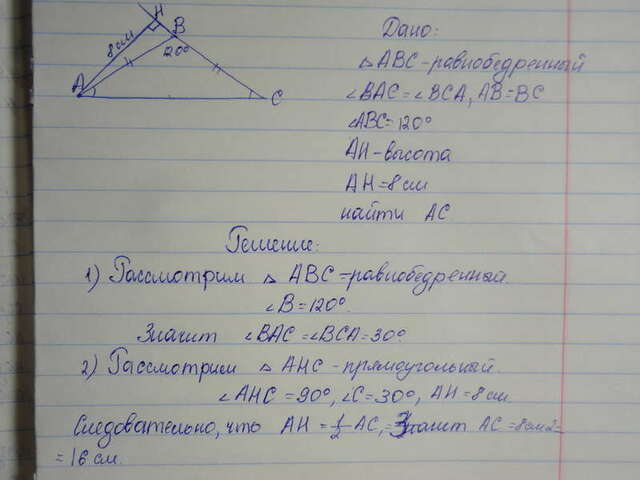 H
B
8см
120°
A
C
Дано:
△ ABC - равнобедренный
∠BAC = ∠BCA, AB = BC
∠ABC = 120°
AH - высота
AH = 8 см
найти AC
Решение:
1) Рассмотрим △ ABC - равнобедренный.
∠B = 120°.
Значит ∠BAC = ∠BCA = 30°
2) Рассмотрим △ AHC - прямоугольный.
∠AHC = 90°, ∠C = 30°, AH = 8 см.
Следовательно, что AH = 1/2 AC, = Значит AC = 8см·2=
= 16 см.